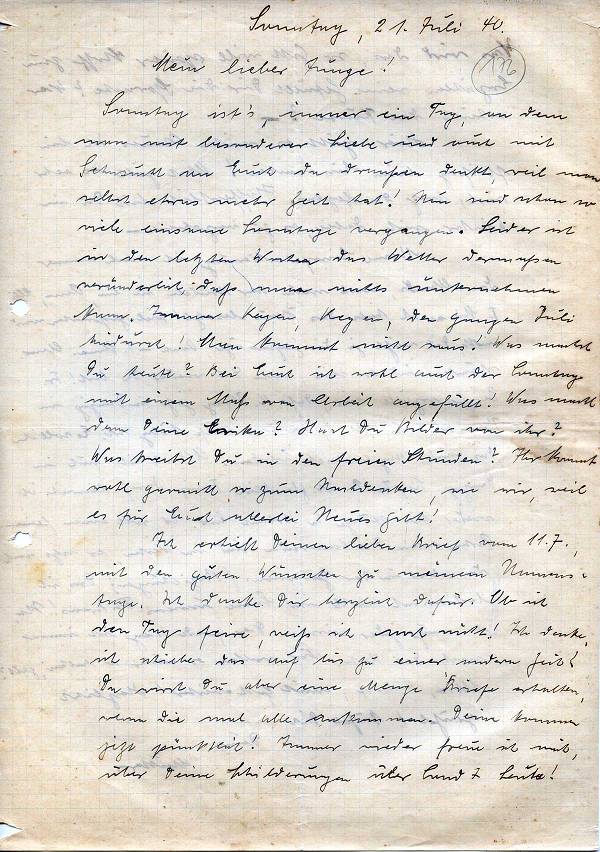 Sonntag, 21. Juli 40.
126
Mein lieber Junge!
Sonntag ist's, immer ein Tag, an dem
man mit besonderer Liebe und auch mit
Sehnsucht an Euch da draußen denkt, weil man
selbst etwas mehr Zeit hat! Nun sind schon so
viele einsame Sonntage vergangen. Leider ist
in den letzten Wochen das Wetter dermaßen
veränderlich daß man nichts unternehmen
kann. Immer Regen, Regen, den ganzen Juli
hindurch! Man kommt nicht raus! Was machst
Du heute? Bei Euch ist wohl auch der Sonntag
mit einem Maß von Arbeit angefüllt! Was macht
denn Deine Erika? Hast Du Bilder von ihr?
Was treibst Du in den freien Stunden? Ihr kommt
wohl gar nicht so zum Nachdenken, wie wir, weil
es für Euch allerlei Neues gibt!
Ich erhielt Deinen lieben Brief vom 11.7.,
mit den guten Wünschen zu meinem Namens-
tage. Ich danke Dir herzlich dafür. Ob ich
den Tag feire, weiß ich noch nicht! Ich denke,
ich schiebe das auf bis zu einer andern Zeit!
Da wirst Du aber eine Menge Briefe erhalten,
wenn die mal alle ankommen. Deine kommen
jetzt pünktlich! Immer wieder freue ich mich,
über Deine Schilderungen über Land & Leute!